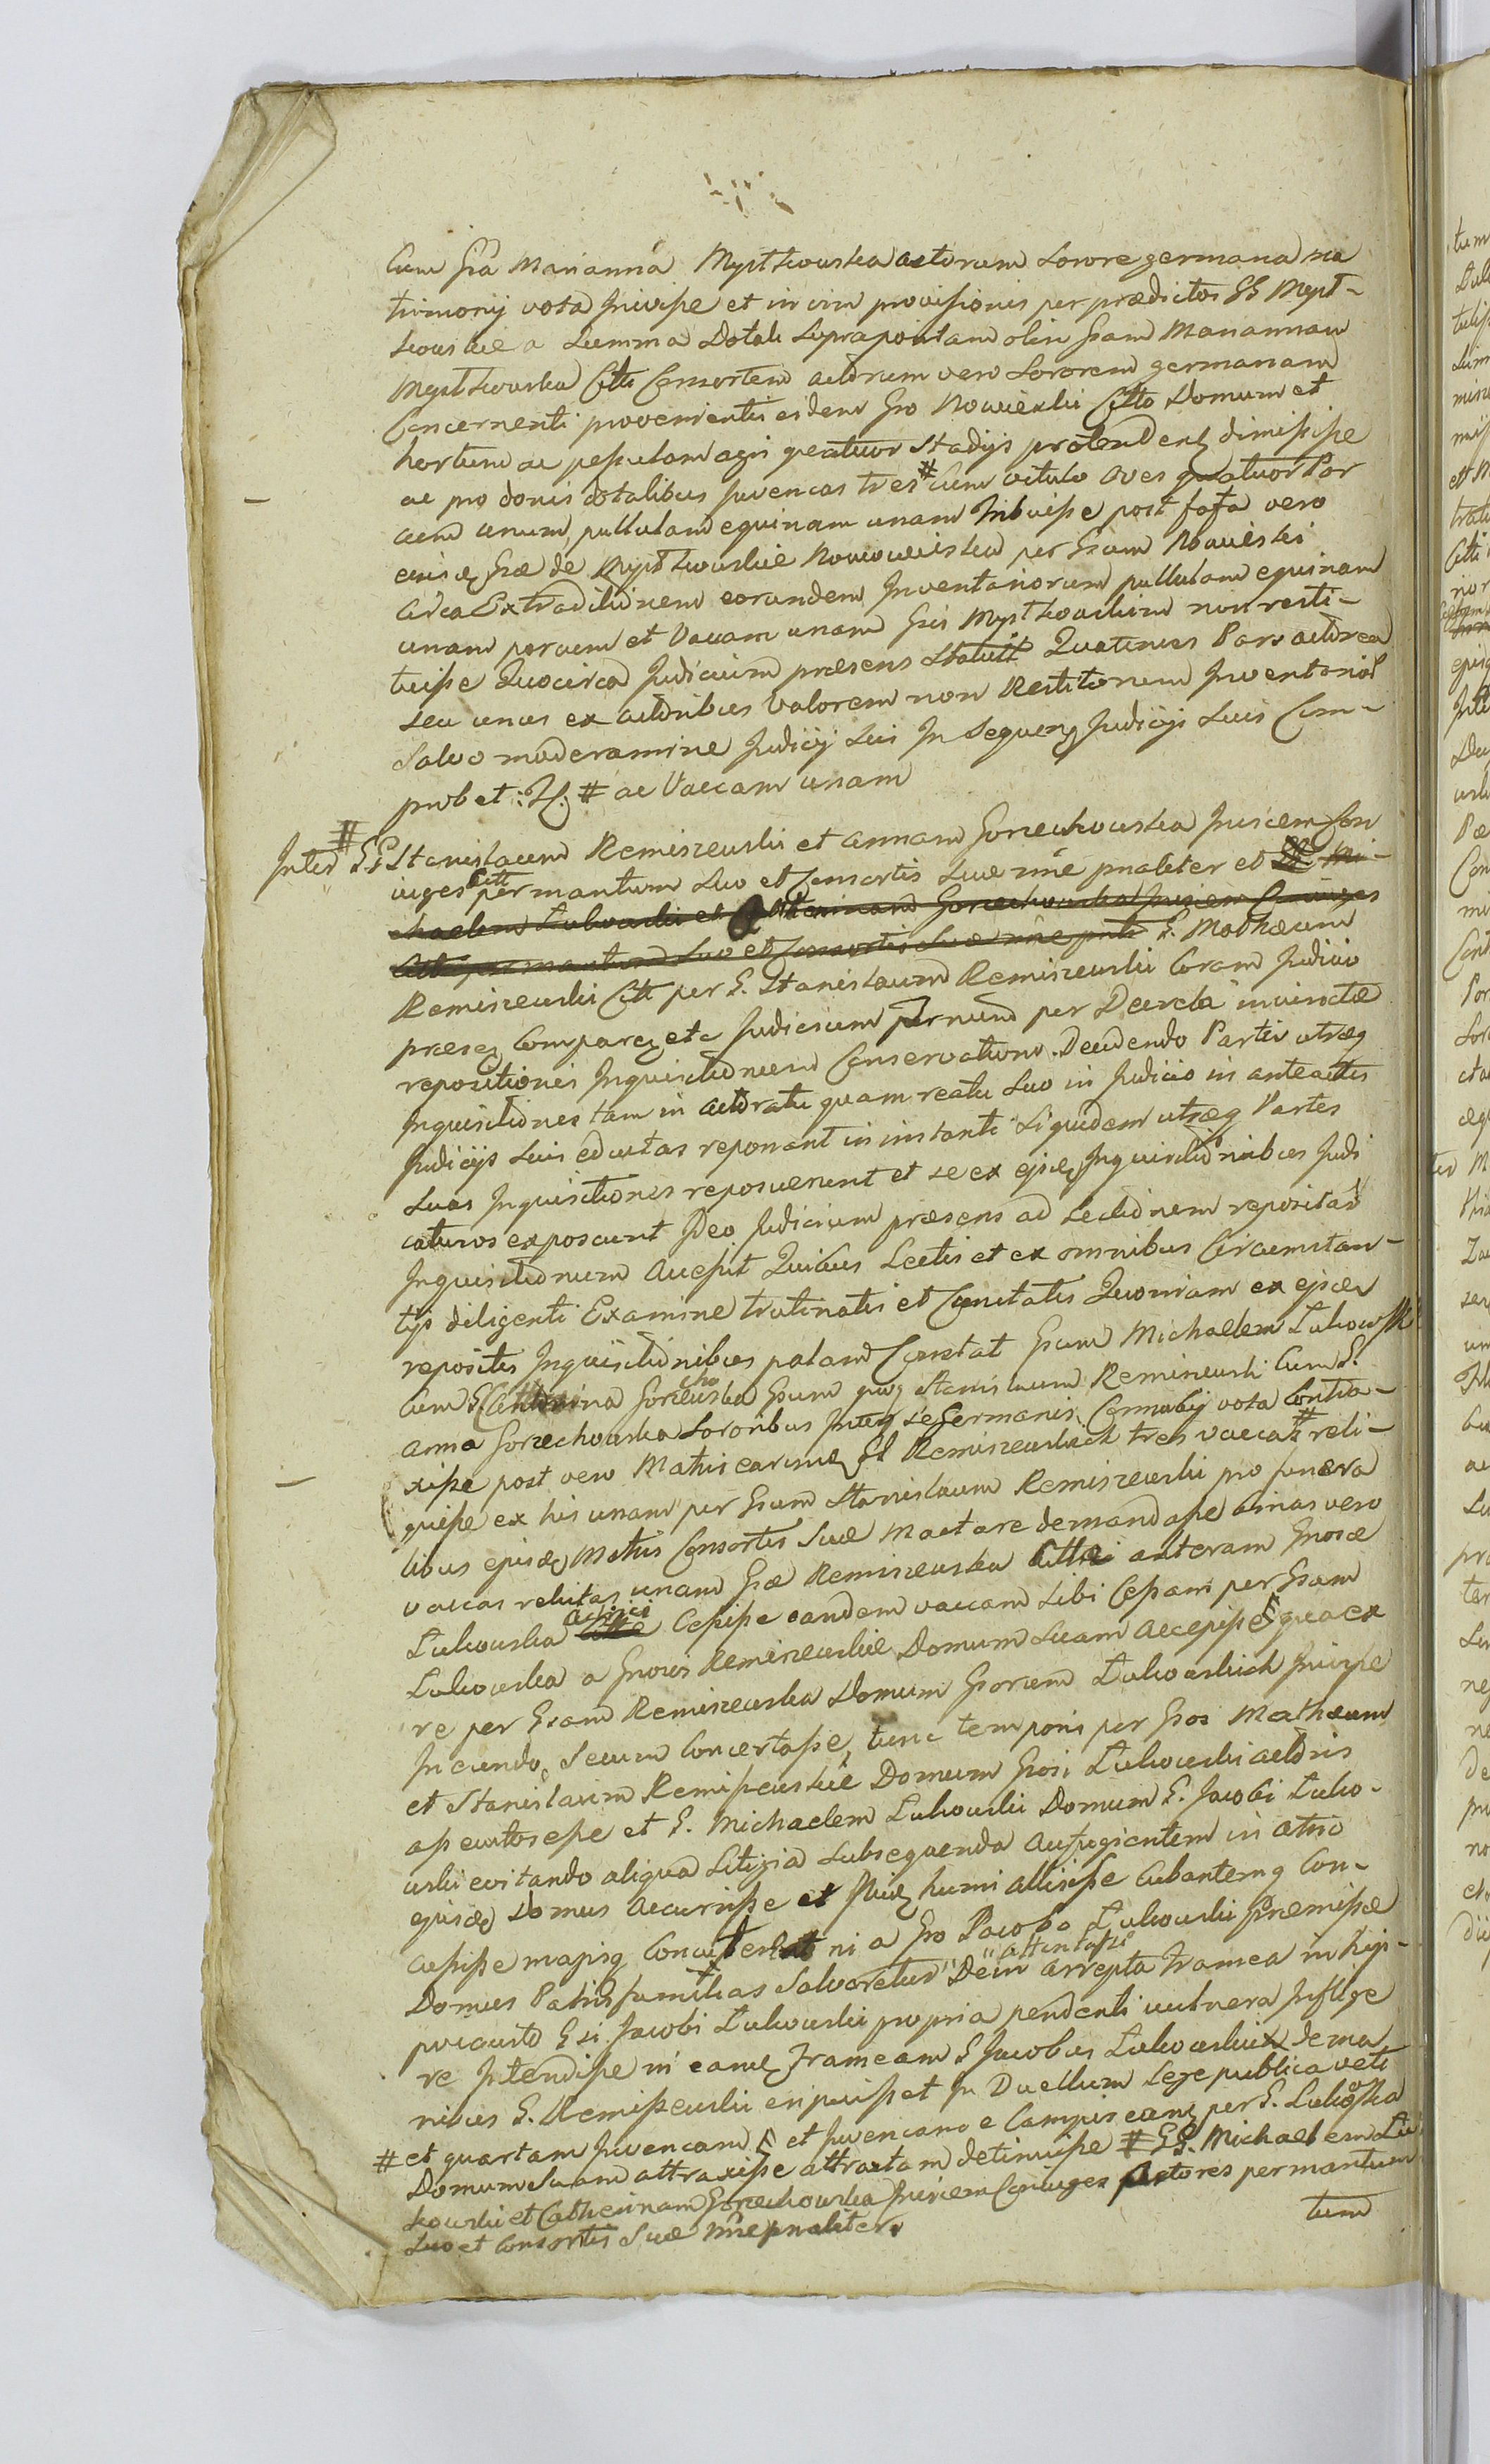 Cum Gsa Marianna Mystkowska actorum sorore germana ma
trimonij vota Inivisse et in vim provisionis per prædictos GG Myst-
kowskie a Summa Dotali supraportam olim Gsam Mariannam
Mystkowska Citti Consortem actorum vero Sororem germanam
Concernenti provenientis eidem Gso Nowieski Citto Domum et
hortum ac peculam agri quatuor stadijs protendentem dimisisse
ac pro donis dotalibus Juvencas tres # cum vitulo oves quatuor Por
cum unum pullulam equinam unam Tribuisse post fata vero
ejusdem Gsæ de Mystkowskie Nowowieiska per Gsum Nowieski
circa Extraditionem eorundem Inventariorum pullulam equinam
unam porcum et Vaccam unam Gsis Mystkowskim non resti-
tuisse Quocirca Judicium præsens statuit Quatenus Pars actorea
seu unus ex actoribus Valorem non Restitorum Inventariorum
Salvo moderamine Judicij Sui In Sequen Judicijs Suis Com-
probet # ac Vaccam unam
# Inter GG Stanislaum Remiszewski et annam Gorzechowska Invicem Con
iuges Citt per mantum suo et Consortis Suæ nne pnaliter et GG Mi-
chaelem Lukowski et Catherinam Gorzechowska Invicem Coniuges
Citti per mantum Suo et Consortis Suæ nne pnli G. Mathæum
Remiszewski Citt per G. Stanislaum Remiszewski Coram Judicio
præsen Comparen etc Judicium prnum per Decreta iniunctæ
repositionis Inquisitionum Conservationi Decidendo Partis utræq
Inquisitiones tam in actoratu quam reatu Suo in Judicio in anteactis
Judicijs Suis eductas reponant in instanti Siquidem utræq Partes
Suas Inquisitiones reposuerunt et se ex ejsdem Inquisitionibus Judi
caturos exposcunt Deo Judicium præsens ad Lectionem repositar
Inquisitionum Accessit Quibus Lectis et ex omnibus Circumstan-
tijs diligenti Examine trutinatis et Conitatis Quoniam ex ejsdem
repositis Inquisitionibus palam Constat Gsum Michaelem Lukowski
Cum G. Catherina Gorzechowska Gsum quoq Stanislaum Remiszewski Cum G.
anna Gorzechowska Sororibus Inter se Germanis Connubij vota Contra-
xisse post vero Matris earum GG Remiszewskich tres vaccas # reli-
quisse ex his unam per Gsum Stanislaum Remiszewski pro funera
libus ejusdem Matris Consortis Suæ Mactare demandasse binas vero
vaccas relictas unam Gsæ Remiszewska Cittæ alteram Gnosæ
Lukowska Actrici Cessisse eandem vaccam Sibi Cessam per Gsam
Lukowska a Gnosis Remiszewskie Domum Suam Accepisse quæ ex
re per Gsam Remiszewska Domum Gsorum Lukowskich Invise
Ineundo Secum Concertasse, tunc temporis per Gsos Mathæum
et Stanislaum Remiszewskie Domum Gsosi Lukowski actoris
ap cuttosesse et G. Michaelem Lukowski Domum G. Jacobi Luko-
wski evitando aliqua Litigia Subsequenda Aufugientem in atrio
ejusdem domus Accurrisse et Ibidem humi allisisse Cubantemq Con-
cussisse magisq ni a Gso Jacobo Lukowski Præmissæ
Domus Patris familias Salvaretur Dein attentasse arrepta framea in hyp-
pocausto Gsi Jacobi Lukowski propria pendenti vulnera Inflige
re Intendisse ni eandem frameam G Jacobus Lukowski de ma
nibus G. Remiszewski eripuisset In Duellum Lege publica veti
# et quartam Juvencam et Juvencam e Campis eandem per G. Lukowska
Domum Suam attraxisse attractam detinuisse # GG. Michaelem Lu
kowski et Catherinam Gorzechowska Invicem Coniuges Actores per mantum
Suo et Consortis Suæ nne pnaliter
tum